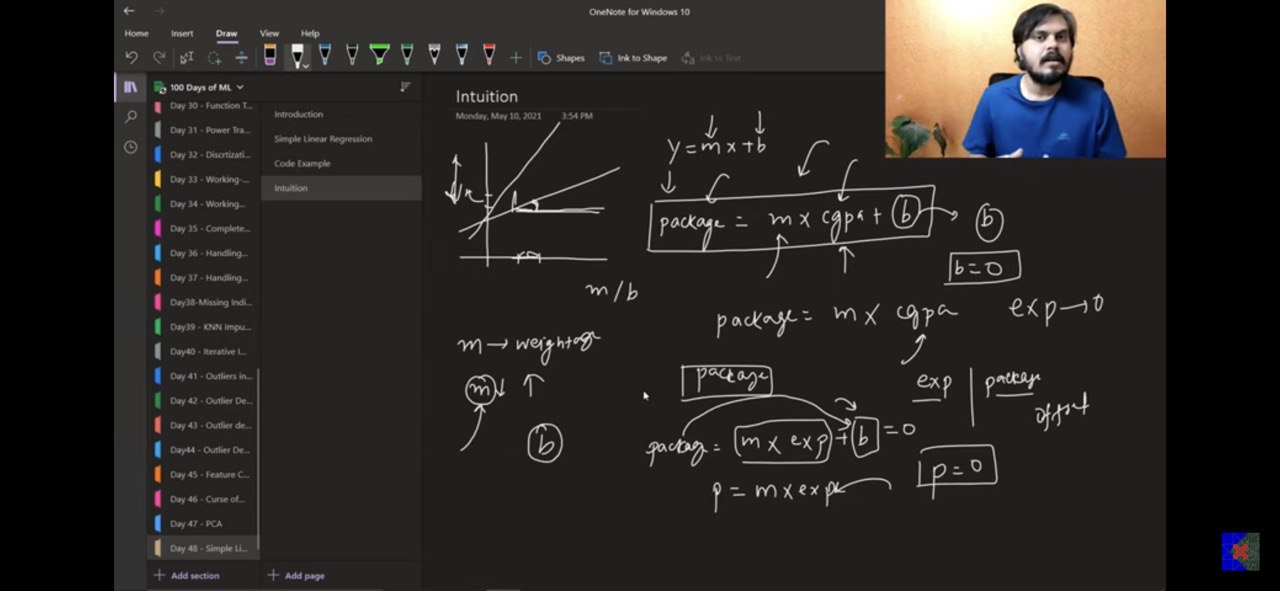 OneNote for Windows 10
Home Insert Draw View Help
Shapes Ink to Shape Ink to Text
100 Days of ML
Day 30 - Function T...
Day 31 - Power Tra...
Day 32 - Discrtizati...
Day 33 - Working-...
Day 34 - Working...
Day 35 - Complete...
Day 36 - Handling...
Day 37 - Handling...
Day38-Missing Indi...
Day39 - KNN Impu...
Day40 - Iterative I...
Day 41 - Outliers in...
Day 42 - Outlier De...
Day 43 - Outlier de...
Day44 - Outlier De...
Day 45 - Feature C...
Day 46 - Curse of...
Day 47 - PCA
Day 48 - Simple Li...
Add section
Introduction
Simple Linear Regression
Code Example
Intuition
Add page
Intuition
Monday, May 10, 2021 3:54 PM
y = mx + b
package = m x cgpa + b
b
b = 0
m / b
package = m x cgpa
exp → 0
m → weightage
m ↓ ↑
b
package
exp | package
offset
package = m x exp + b = 0
p = m x exp
p = 0